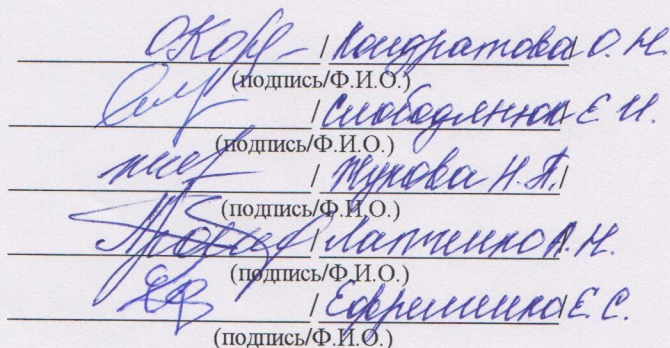 / Кондратова О. Н.
(подпись/Ф.И.О.)
/ Слободянюк Е. И.
(подпись/Ф.И.О.)
/ Жукова Н.П./
(подпись/Ф.И.О.)
/ Лапченко А. Н.
(подпись/Ф.И.О.)
/ Ефременко Е. С.
(подпись/Ф.И.О.)